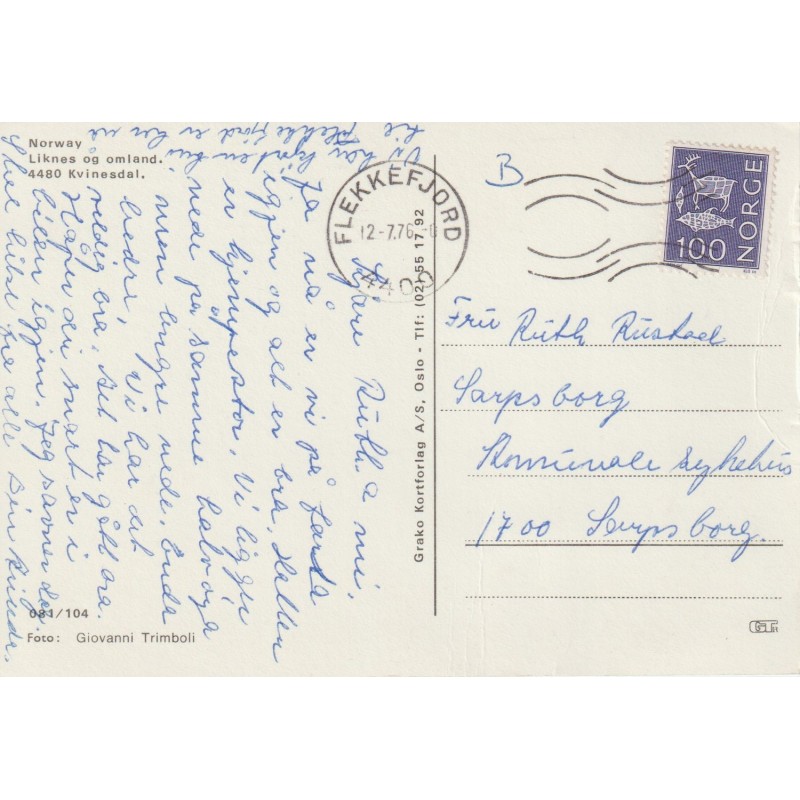 Norway
Liknes og omland.
4480 Kvinesdal.
Kjære Rutha mi,
Ja nå er vi på farta
igjen og alt er bra.
er hjempestor, Vi ligger
nede på samme halvøya
men lengre nede, enda
bedre, Vi har det
veldig bra, det har gått bra.
Håper du snart er i
bilen igjen. Jeg savner deg.
hilsen fra alle
Vi har
til Flekkefjord er
081/104
Foto: Giovanni Trimboli
Grako Kortforlag A/S, Oslo - Tlf: (02) 55 17 92
FLEKKEFJORD
12-7.76
4400
B
NORGE
100
Fru Ruth Rustad
Sarpsborg
Komunale sykehus
1700 Sarpsborg.
GT